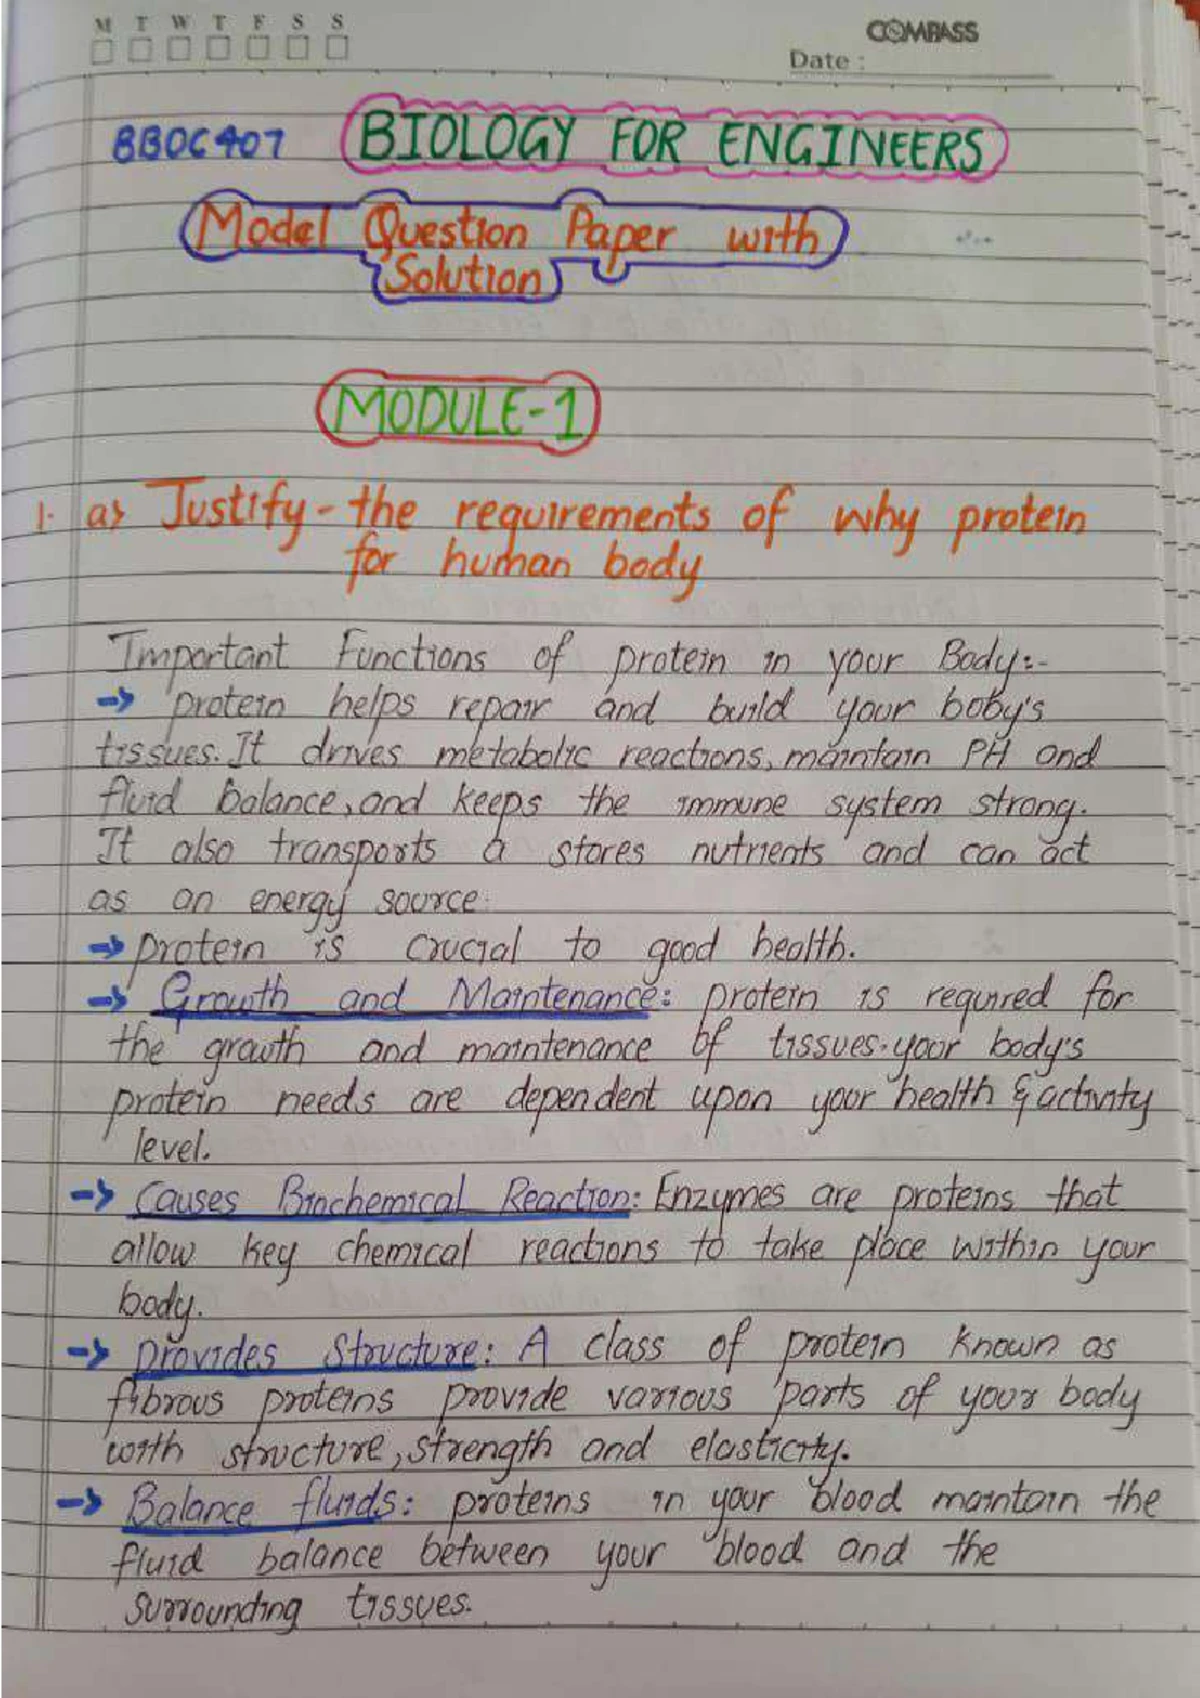 M T W T F S S
COMPASS
Date :
BBOC407 BIOLOGY FOR ENGINEERS
Model Question Paper with
Solution
MODULE-1
1. a) Justify - the requirements of why protein
for human body
Important Functions of protein in your Body:-
→ protein helps repair and build your boby's
tissues. It drives metabolic reactions, maintain PH and
fluid balance, and keeps the immune system strong.
It also transports a stores nutrients and can act
as an energy source.
→ protein is crucial to good health.
→ Growth and Maintenance: protein is required for
the growth and maintenance of tissues. your body's
protein needs are dependent upon your health & activity
level.
→ Causes Biochemical Reaction: Enzymes are proteins that
allow key chemical reactions to take place within your
body.
→ provides Structure: A class of protein known as
fibrous proteins provide various parts of your body
with structure, strength and elasticity.
→ Balance fluids: proteins in your blood maintain the
fluid balance between your blood and the
surrounding tissues.